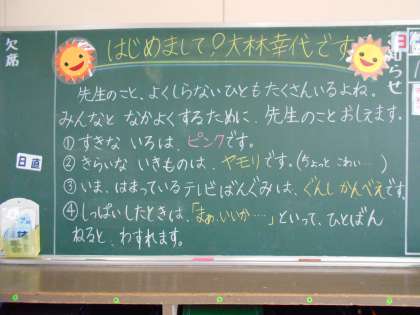 はじめまして♪大林幸代です
先生のこと、よくしらないひともたくさんいるよね。
みんなと なかよくするために、先生のことおしえます。
①すきな いろは、ピンクです。
②きらいな いきものは、ヤモリです。(ちょっと こわい…)
③いま、はまっているテレビばんぐみは、ぐんしかんべえです。
④しっぱいしたときは、「まぁ、いいか…」といって、ひとばん
ねると、わすれます。
欠席
日直
お知らせ
日